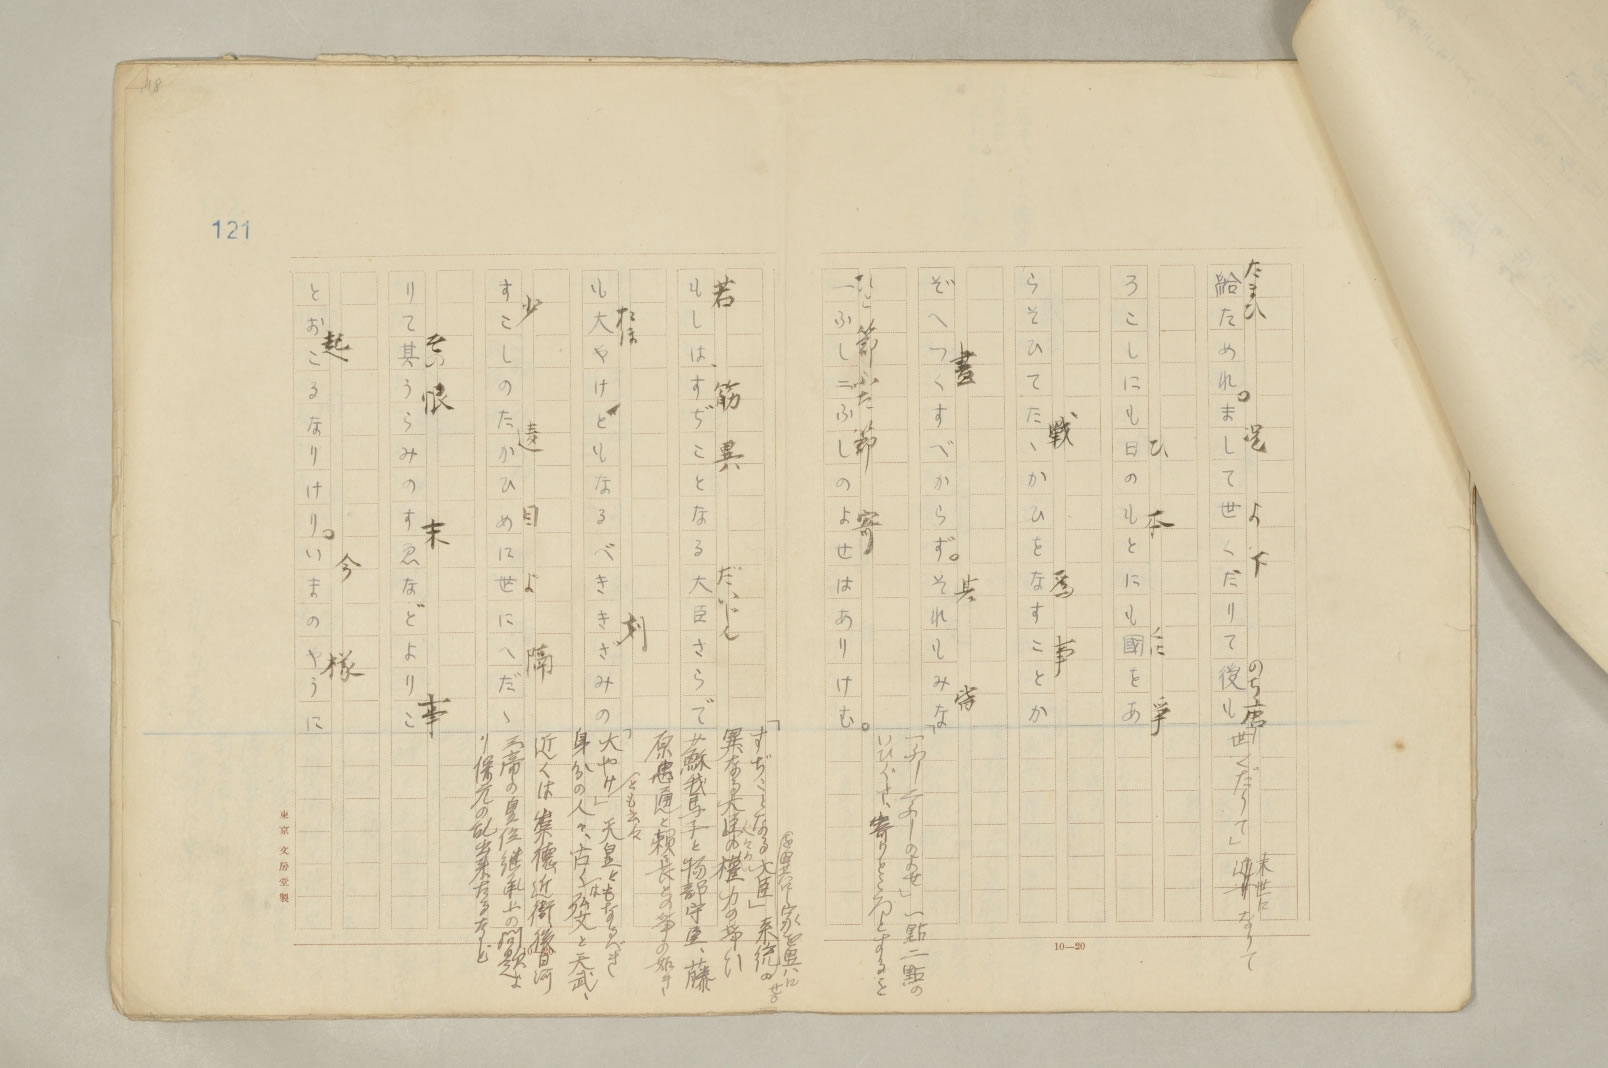 給ためれ。ましてせくだりて後も
たまひ
よ下
のち
ろこしにも日のもとにも國をあ
ひ 本
くに 爭
らそひてたゝかひをなすことか
戰 爲 事
ぞへつくすべからず。それもみな
盡 其 皆
一ふし二ふしのよせはありけむ。
ひと 節 ふた 節 寄
もしは、すぢことなる大臣さらで
若 筋 異 だいじん
も大やけともなるべききざみの
おほ 刻
すこしのたかひめに世にへだゝ
少 違 目 よ 隔
りて其うらみのすゑなどよりこ
その 恨 末 事
とおこるなりけり。いまのやうに
起 今 様
世くだりて」
末世に
なりて
「一ふし二ふしのよせ」一點二點の
寄りどころとすること
「すぢことなる大臣」系統の
異なる大臣の權力の爭ひ
蘇我馬子と物部守屋、藤
原忠通と賴長との爭の如き
「大やけ」天皇ともなるべき
ともなる
身分の人々、古くは弘文と天武、
近くは崇德近衞後白河
三帝の皇位繼承上の問題よ
り保元の亂出來たるなど
121
18
10—20
東京 文房堂製